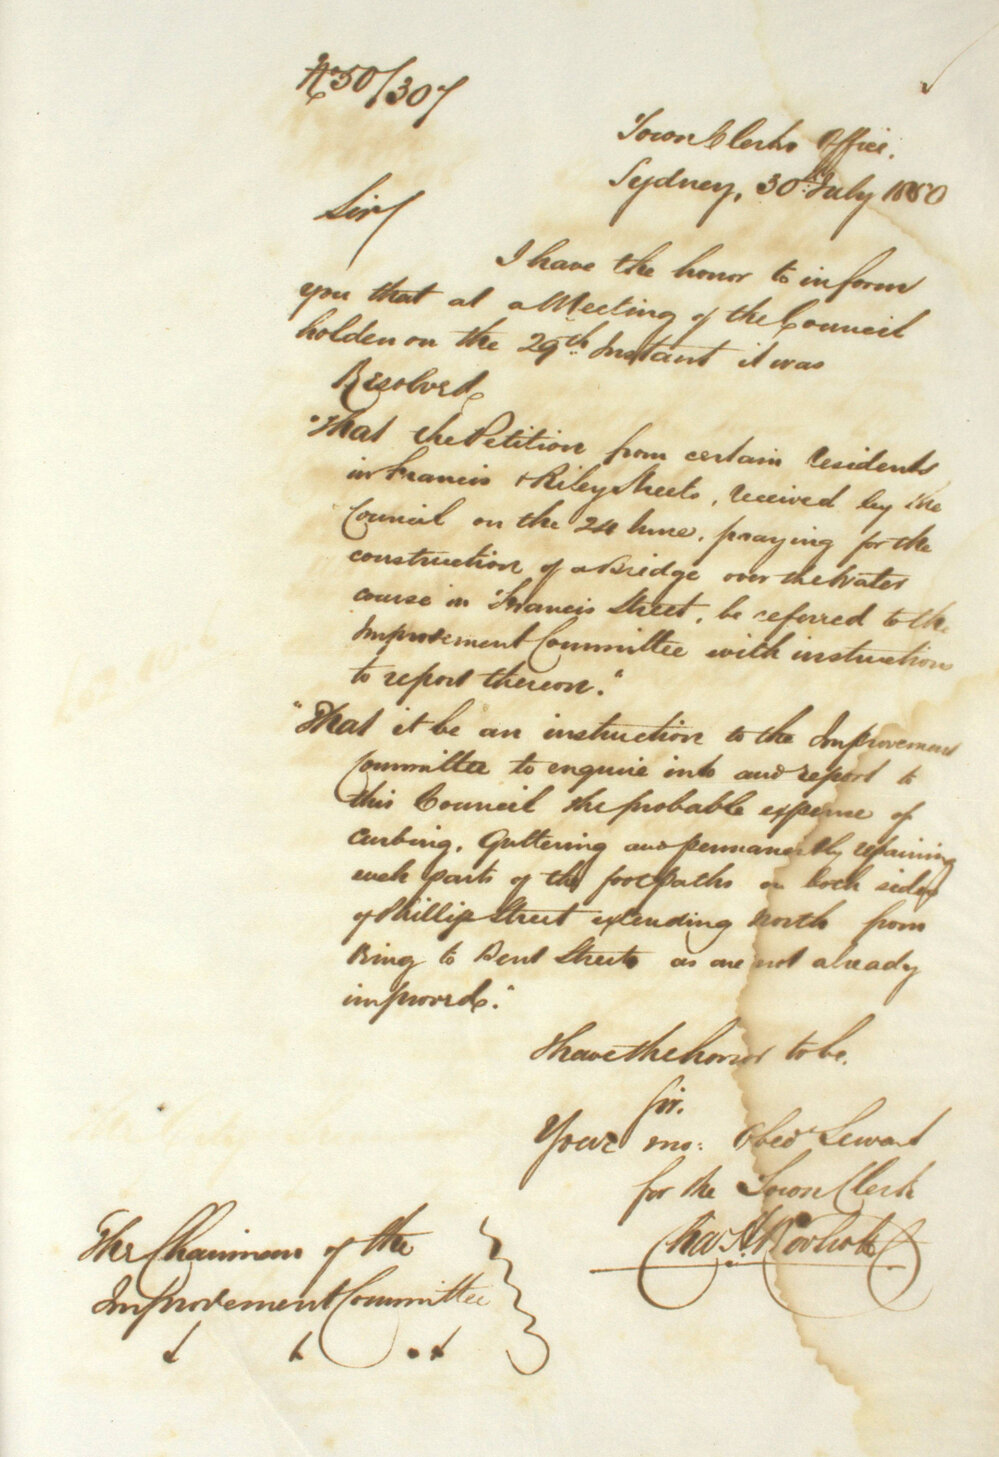 No 50/307
Town Clerks Office.
Sydney, 30th July 1850
Sir/
I have the honor to inform
you that at a Meeting of the Council
holden on the 29th Instant it was
Resolved,
"That the Petition from certain residents
in Francis & Riley Streets, received by the
Council on the 24 June, praying for the
construction of a Bridge over the Water
course in Francis Street, be referred to the
Improvement Committee with instructions
to report thereon."
"That it be an instruction to the Improvement
Committee to enquire into and report to
this Council the probable expense of
curbing, Guttering and permanently repairing
such parts of the footpaths on both sides
of Phillip Street extending North from
King to Bent Streets as are not already
improved."
I have the honor to be,
Sir,
Your mo: Obedt Servant
for the Town Clerk
Chas H
The Chairman of the
Improvement Committee